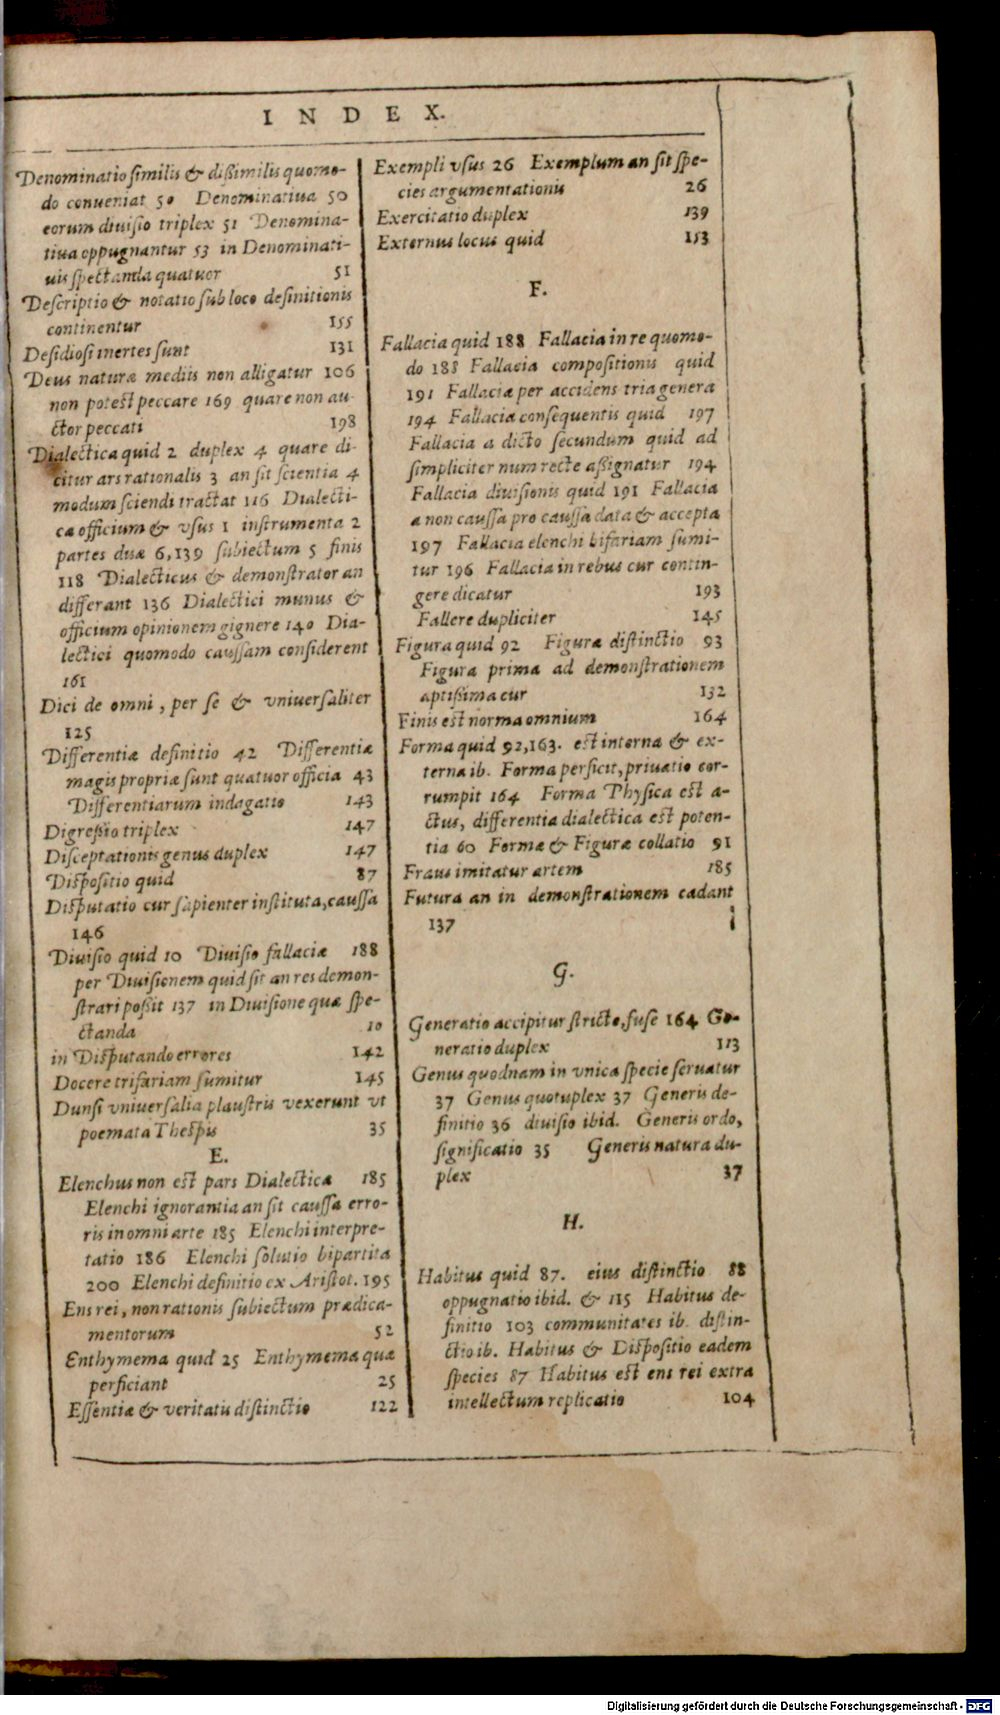 INDEX.
Denominatio similis & dißimilis quomo-
do conueniat 50 Denominatiua 50
eorum diuisio triplex 51 Denomina-
tiua oppugnantur 53 in Denominati-
uis spectanda quatuor 51
Descriptio & notatio sub loco definitionis
continentur 155
Desidiosi inertes sunt 131
Deus naturæ mediis non alligatur 106
non potest peccare 169 quare non au-
ctor peccati 198
Dialectica quid 2 duplex 4 quare di-
citur ars rationalis 3 an sit scientia 4
modum sciendi tractat 116 Dialecti-
cæ officium & vsus 1 instrumenta 2
partes duæ 6,139 subiectum 5 finis
118 Dialecticus & demonstrator an
differant 136 Dialectici munus &
officium opinionem gignere 140 Dia-
lectici quomodo caussam considerent
161
Dici de omni, per se & vniuersaliter
125
Differentiæ definitio 42 Differentiæ
magis propriæ sunt quatuor officia 43
Differentiarum indagatio 143
Digreßio triplex 147
Disceptationis genus duplex 147
Dispositio quid 87
Disputatio cur sapienter instituta, caussa
146
Diuisio quid 10 Diuisio fallaciæ 188
per Diuisionem quid sit an res demon-
strari poßit 137 in Diuisione quæ spe-
ctanda 10
in Disputando errores 142
Docere trifariam sumitur 145
Dunsi vniuersalia plaustris vexerunt vt
poemata Thespis 35
E.
Elenchus non est pars Dialecticæ 185
Elenchi ignorantia an sit caussa erro-
ris in omni arte 185 Elenchi interpre-
tatio 186 Elenchi solutio bipartita
200 Elenchi definitio ex Aristot. 195
Ens rei, non rationis subiectum prædica-
mentorum 52
Enthymema quid 25 Enthymema quæ
perficiant 25
Essentiæ & veritatis distinctio 122
Exempli vsus 26 Exemplum an sit spe-
cies argumentationis 26
Exercitatio duplex 139
Externus locus quid 153
F.
Fallacia quid 188 Fallacia in re quomo-
do 188 Fallacia compositionis quid
191 Fallaciæ per accidens tria genera
194 Fallacia consequentis quid 197
Fallacia a dicto secundum quid ad
simpliciter num recte aßignatur 194
Fallacia diuisionis quid 191 Fallacia
a non caussa pro caussa data & accepta
197 Fallacia elenchi bifariam sumi-
tur 196 Fallacia in rebus cur contin-
gere dicatur 193
Fallere dupliciter 145
Figura quid 92 Figuræ distinctio 93
Figura prima ad demonstrationem
aptißima cur 132
Finis est norma omnium 164
Forma quid 92,163. est interna & ex-
terna ib. Forma perficit, priuatio cor-
rumpit 164 Forma Physica est a-
ctus, differentia dialectica est poten-
tia 60 Formæ & Figuræ collatio 91
Fraus imitatur artem 185
Futura an in demonstrationem cadant
137
G.
Generatio accipitur stricte, fuse 164 Ge-
neratio duplex 113
Genus quodnam in vnica specie seruatur
37 Genus quotuplex 37 Generis de-
finitio 36 diuisio ibid. Generis ordo,
significatio 35 Generis natura du-
plex 37
H.
Habitus quid 87. eius distinctio 88
oppugnatio ibid. & 115 Habitus de-
finitio 103 communitates ib. distin-
ctio ib. Habitus & Dispositio eadem
species 87 Habitus est ens rei extra
intellectum replicatio 104
Digitalisierung gefördert durch die Deutsche Forschungsgemeinschaft - DFG